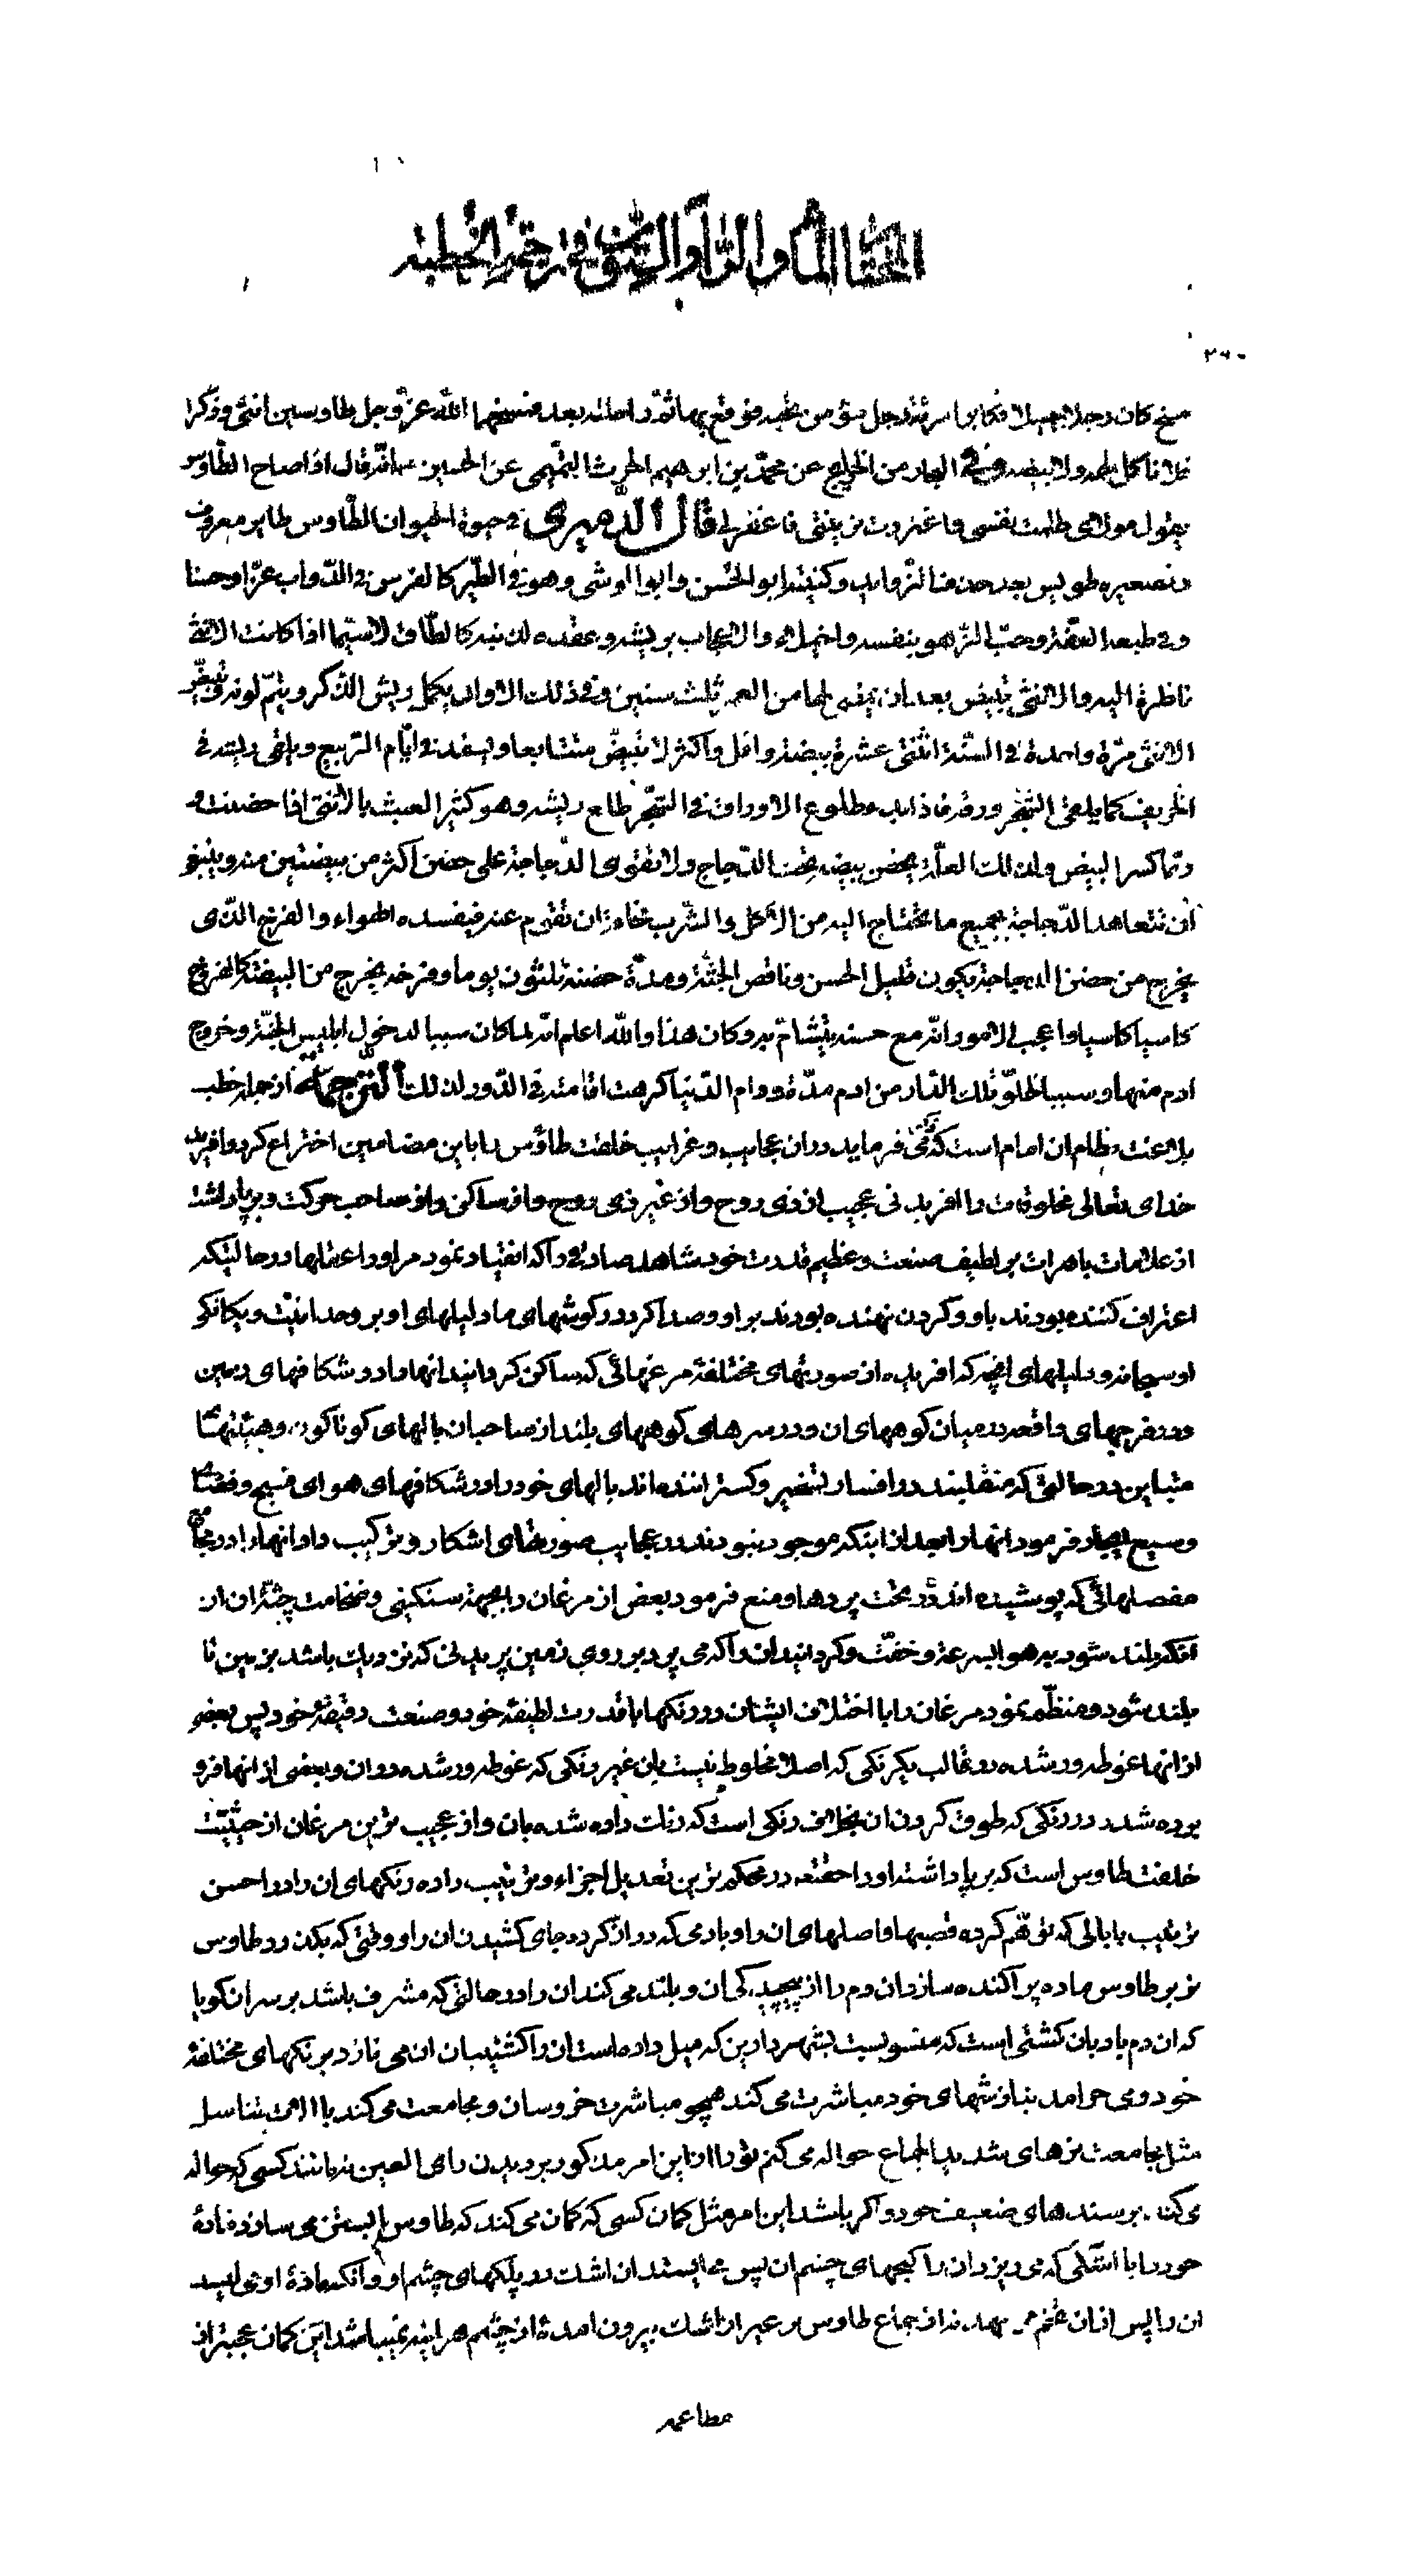 المختار المأة والرابع والستون فی ترجمة الخطبة
۲۶۰
مسخ كان رجلا جميلا فكابر امرئة رجل مؤمن تحبه فوقع بها ثم راسلته بعد فمسخهما الله عز وجل طاوسين انثى وذكرا
فلا تأكل لحمه ولا بيضه وفی البحار من الخرايج عن محمد بن ابرهيم الحرث التميمی عن الحسين انه قال اذا صاح الطاوس
يقول مولای ظلمت نفسی واغتررت بزينتی فاغفر لی قال الدميری فی حيوة الحيوان الطاوس طاير معروف
وتصغيره طويس بعد حذف الزوايد وكنيته ابو الحسن وابو الوشی وهو فی الطير كالفرس فی الدواب عزا وحسنا
وفی طبعه العفة وحب الزهو بنفسه والخيلاء والاعجاب بريشه وعقده لذنبه كالطاق لا سيما اذا كانت الانثى
ناظرة اليه والانثى تبيض بعد ان يمضی لها من العمر ثلث سنين وفی ذلك الاوان يكمل ريش الذكر ويتم لونه وتبيض
الانثى مرة واحدة فی السنة اثنتی عشرة بيضة واقل واكثر لا تبيض متتابعا ويسفد فی ايام الربيع ويلقی ريشه فی
الخريف كما يلقی الشجر ورقه فاذا بدء طلوع الاوراق فی الشجر طلع ريشه وهو كثير العبث بالانثى اذا حضنت و
ربما كسر البيض ولذلك العلة يحضن بيضه تحت الدجاج ولا تقوى الدجاجة على حضن اكثر من بيضتين منه وينبغی
ان تتعاهد الدجاجة بجميع ما تحتاج اليه من الاكل والشرب مخافة ان تقوم عنه فيفسده الهواء والفرخ الذی
يخرج من حضن الدجاجة يكون قليل الحسن وناقص الجثة ومدة حضنه ثلثون يوما وفرخه يخرج من البيضة كالفروج
كاسيا كاسبا واعجب الامور انه مع حسنه يتشأم به وكان هذا والله اعلم انه لما كان سببا لدخول ابليس الجنة وخروج
ادم منها وسببا لخلو تلك الدار من ادم مدة دوام الدنيا كرهت اقامته فی الدور لذلك الترجمة از جمله خطب
بلاغت نظام ان امام است كه می فرمايد در ان عجايب وغرايب خلقت طاوس را باين مضامين اختراع كرد وافريد
خدای تعالی مخلوقات را افريدنی عجيب از ذی روح واز غير ذی روح واز ساكن واز صاحب حركت وبرپا داشت
از علامات باهرات بر لطيف صنعت وعظيم قدرت خود شاهد صادقی را كه انقياد نمود مر او را عقلها در حالتيكه
اعتراف كننده بودند باو وگردن نهنده بودند بر او وصدا كرد در كوشهای ما دليلهای او بر وحدانيت ويگانگی
او سبحانه ودليلهای انچه كه افريده از صورتهای مختلفه مرغهائی كه ساكن گردانيد انها را در شكافهای زمين
ودر فرجهای واقعه در ميان كوههای ان ودر سرهای كوههای بلند از صاحبان بالهای كوناكون وهيئتهای
متباين در حالتی كه منقلبند در افسار تسخير وگستراننده اند بالهای خود را در شكافهای هوای فسيح وفضای
وسيع ايجاد فرمود انها را بعد از اينكه موجود نبودند در عجايب صورتهای اشكار وتركيب داد انها را در مجامع
مفصلهائی كه پوشيده اند در تحت پردها ومنع فرمود بعض از مرغان را بجهة سنگينی وضخامت جثه ان از
انكه بلند شود بر هوا بسرعة وخفت وگردانيد ان را كه می پرد بر روی زمين پريدنی كه نزديك باشد بزمين تا
بلند شود ومنظم نمود مرغان را با اختلاف ايشان در رنكها با قدرت لطيفه خود وصنعت دقيقه خود پس بعضی
از انها غوطه ور شده در قالب يكرنكی كه اصلا مخلوط نيست بان غير رنكی كه غوطه ور شده در ان وبعضی از انها فرو
برده شده در رنكی كه طوق گردن ان بخلاف رنكی است كه رنك داده شده بان واز عجيب ترين مرغان از حيثيت
خلقت طاوس است كه برپا داشته او را حقتعه در محكم ترين تعديل اجزاء وترتيب داده رنكهای ان را در احسن
ترتيب با بالی كه توهم كرده قصبها واصلهای ان را وبا دمی كه دراز كرده جای كشيدن ان را وقتی كه بگذرد طاوس
نر بر طاوس ماده پراكنده سازد ان دم را از پيچيدگی ان وبلند می كند ان را در حالتی كه مشرف باشد بر سر ان گويا
كه ان دم بادبان كشتی است كه منسوبست بشهر دارين كه ميل داده است ان را كشتيبان ان می نازد برنكهای مختلفه
خود ومی خرامد بنازشهای خود مباشرت می كند همچو مباشرت خروسان ومجامعت می كند با الات تناسل
مثل مجامعت نرهای شديد الجماع حواله می كنم تو را از اين امر مذكور بر ديدن رای العين نه مانند كسی كه حواله
می كند بر سندهای ضعيف خود واكر باشد اين امر مثل گمان كسی كه گمان می كند كه طاوس ابستن می سازد ماده
خود را با اشكی كه می ريزد ان را كنجهای چشم ان پس می ايستد ان اشك در پلكهای چشم او وانكه ماده او می ليسد
ان را پس از ان تخم می نهد نه از جماع طاوس نر غير از اشك بيرون امده از چشم هر اينه نمی باشد اين گمان عجبتر از
مطاعمه